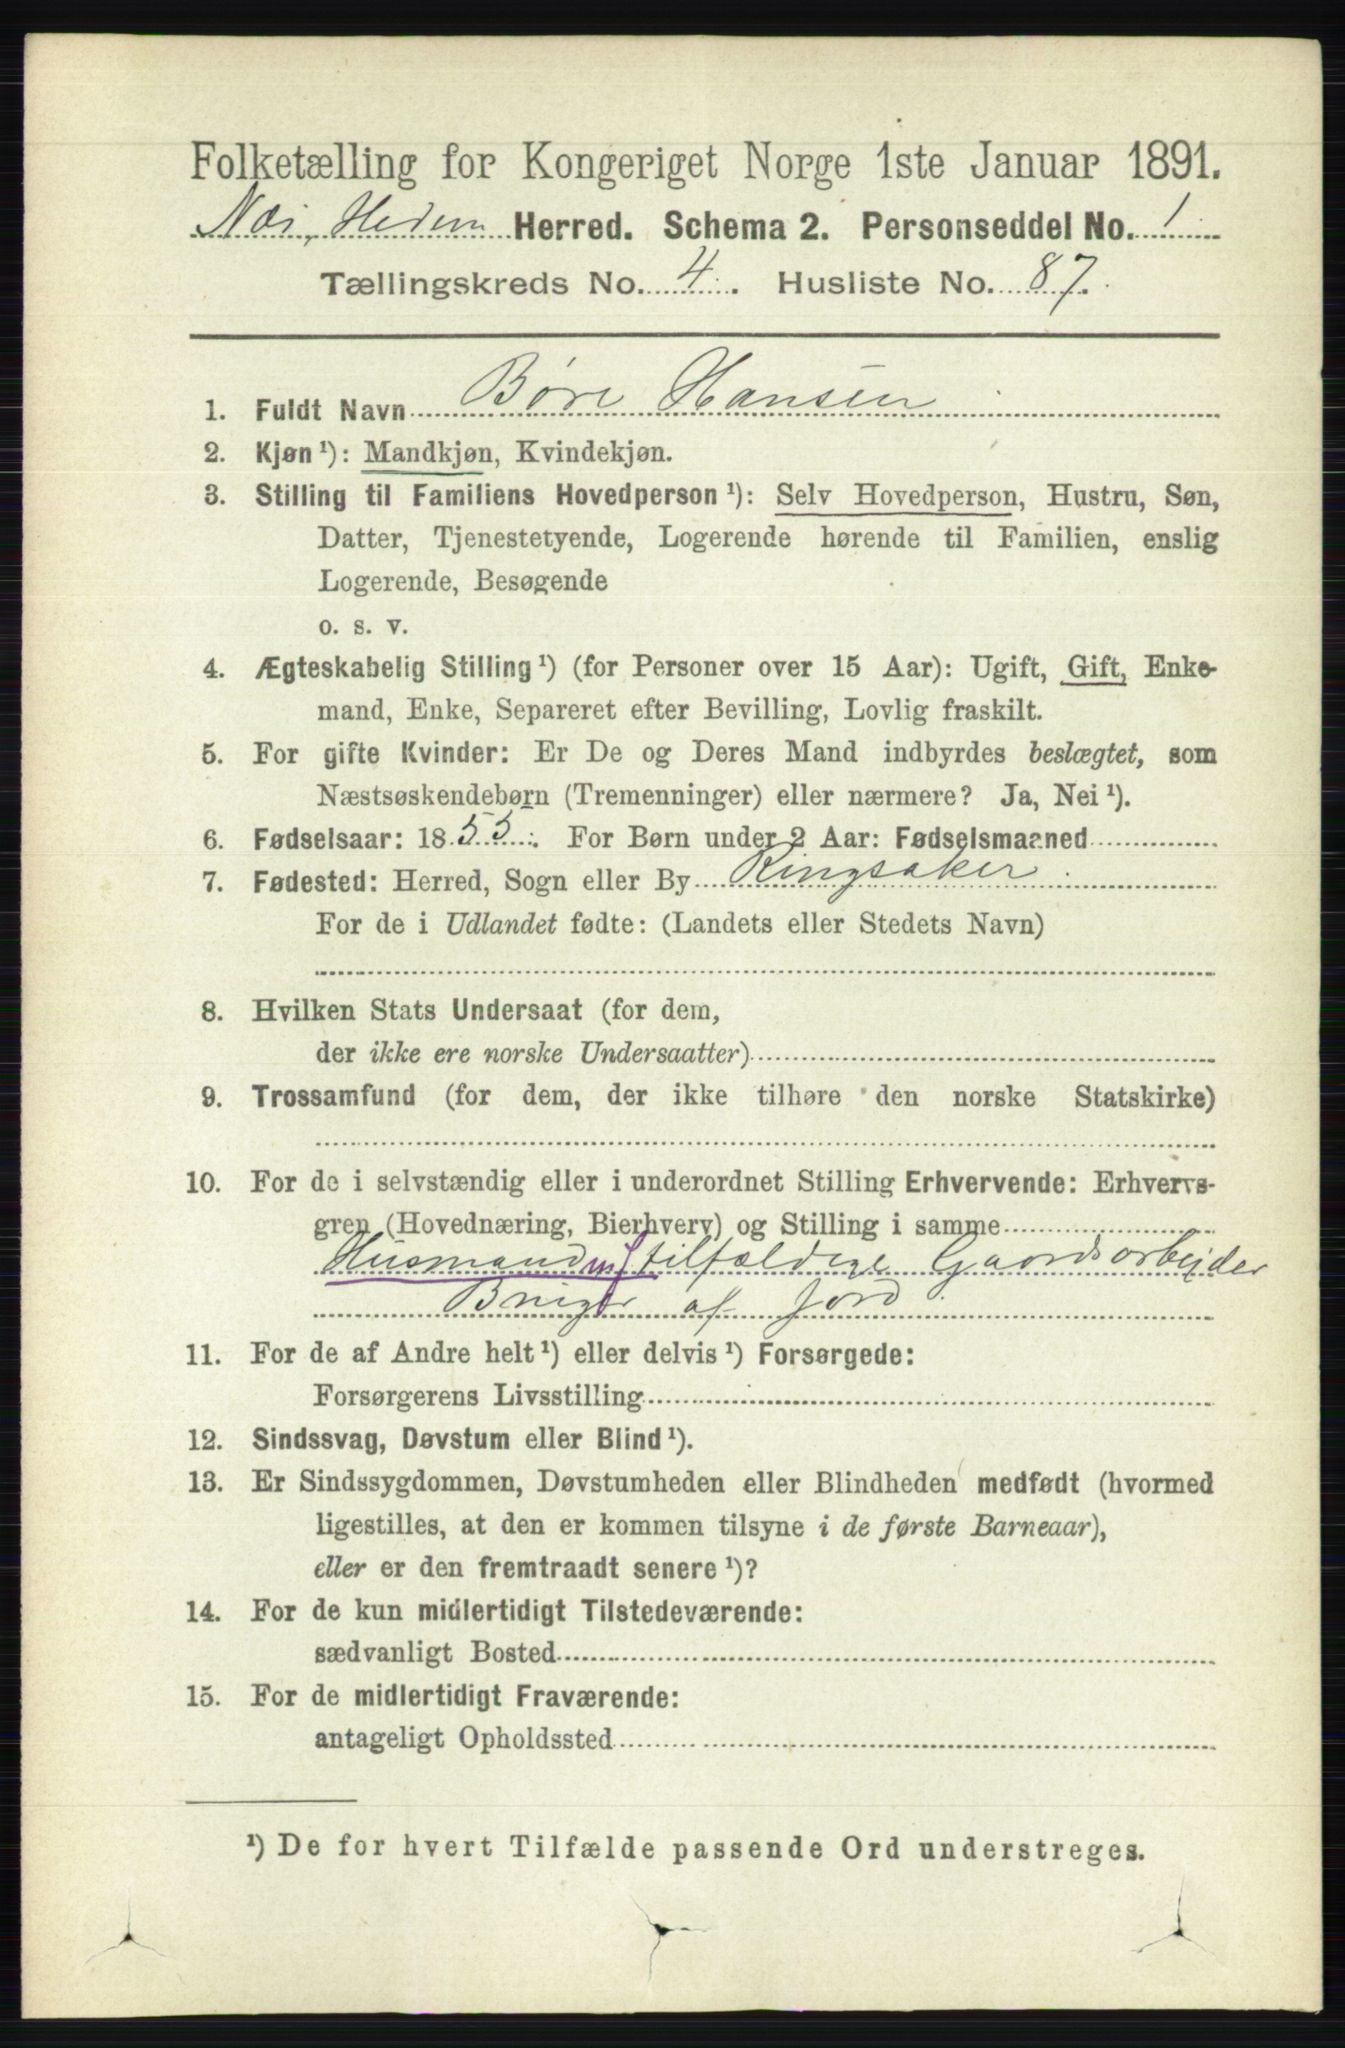 Folketælling for Kongeriget Norge 1ste Januar 1891.
Næs, Hedem Herred. Schema 2. Personseddel No. 1
Tællingskreds No. 4. Husliste No. 87.
1. Fuldt Navn Børe Hansen
2. Kjøn ¹): Mandkjøn, Kvindekjøn.
3. Stilling til Familiens Hovedperson ¹): Selv Hovedperson, Hustru, Søn,
Datter, Tjenestetyende, Logerende hørende til Familien, enslig
Logerende, Besøgende
o. s. v.
4. Ægteskabelig Stilling ¹) (for Personer over 15 Aar): Ugift, Gift, Enke-
mand, Enke, Separeret efter Bevilling, Lovlig fraskilt.
5. For gifte Kvinder: Er De og Deres Mand indbyrdes beslægtet, som
Næstsøskendebørn (Tremenninger) eller nærmere? Ja, Nei ¹).
6. Fødselsaar: 1855. For Børn under 2 Aar: Fødselsmaaned
7. Fødested: Herred, Sogn eller By Ringsaker
For de i Udlandet fødte: (Landets eller Stedets Navn)
8. Hvilken Stats Undersaat (for dem,
der ikke ere norske Undersaatter)
9. Trossamfund (for dem, der ikke tilhøre den norske Statskirke)
10. For de i selvstændig eller i underordnet Stilling Erhvervende: Erhvervs-
gren (Hovednæring, Bierhverv) og Stilling i samme
Husmand mJ tilfældige Gaardsarbejder
Bruger af Jord
11. For de af Andre helt ¹) eller delvis ¹) Forsørgede:
Forsørgerens Livsstilling
12. Sindssvag, Døvstum eller Blind ¹).
13. Er Sindssygdommen, Døvstumheden eller Blindheden medfødt (hvormed
ligestilles, at den er kommen tilsyne i de første Barneaar),
eller er den fremtraadt senere ¹)?
14. For de kun midlertidigt Tilstedeværende:
sædvanligt Bosted
15. For de midlertidigt Fraværende:
antageligt Opholdssted
¹) De for hvert Tilfælde passende Ord understreges.